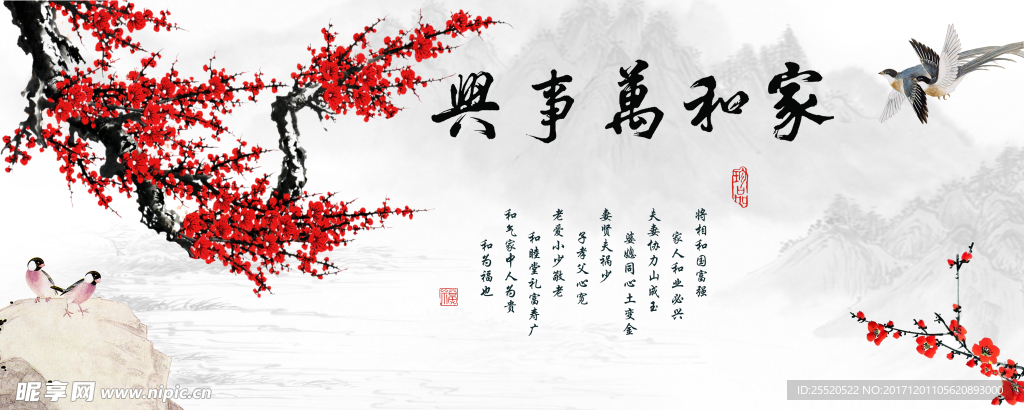 家和萬事興
珍品
将相和国富强
家人和业必兴
夫妻协力山成玉
婆媳同心土变金
妻贤夫祸少
子孝父心宽
老爱小少敬老
和睦堂礼富寿广
和气家中人为贵
和为福也
昵享网 www.nipic.cn
ID:25520522 NO:20171201105620893000